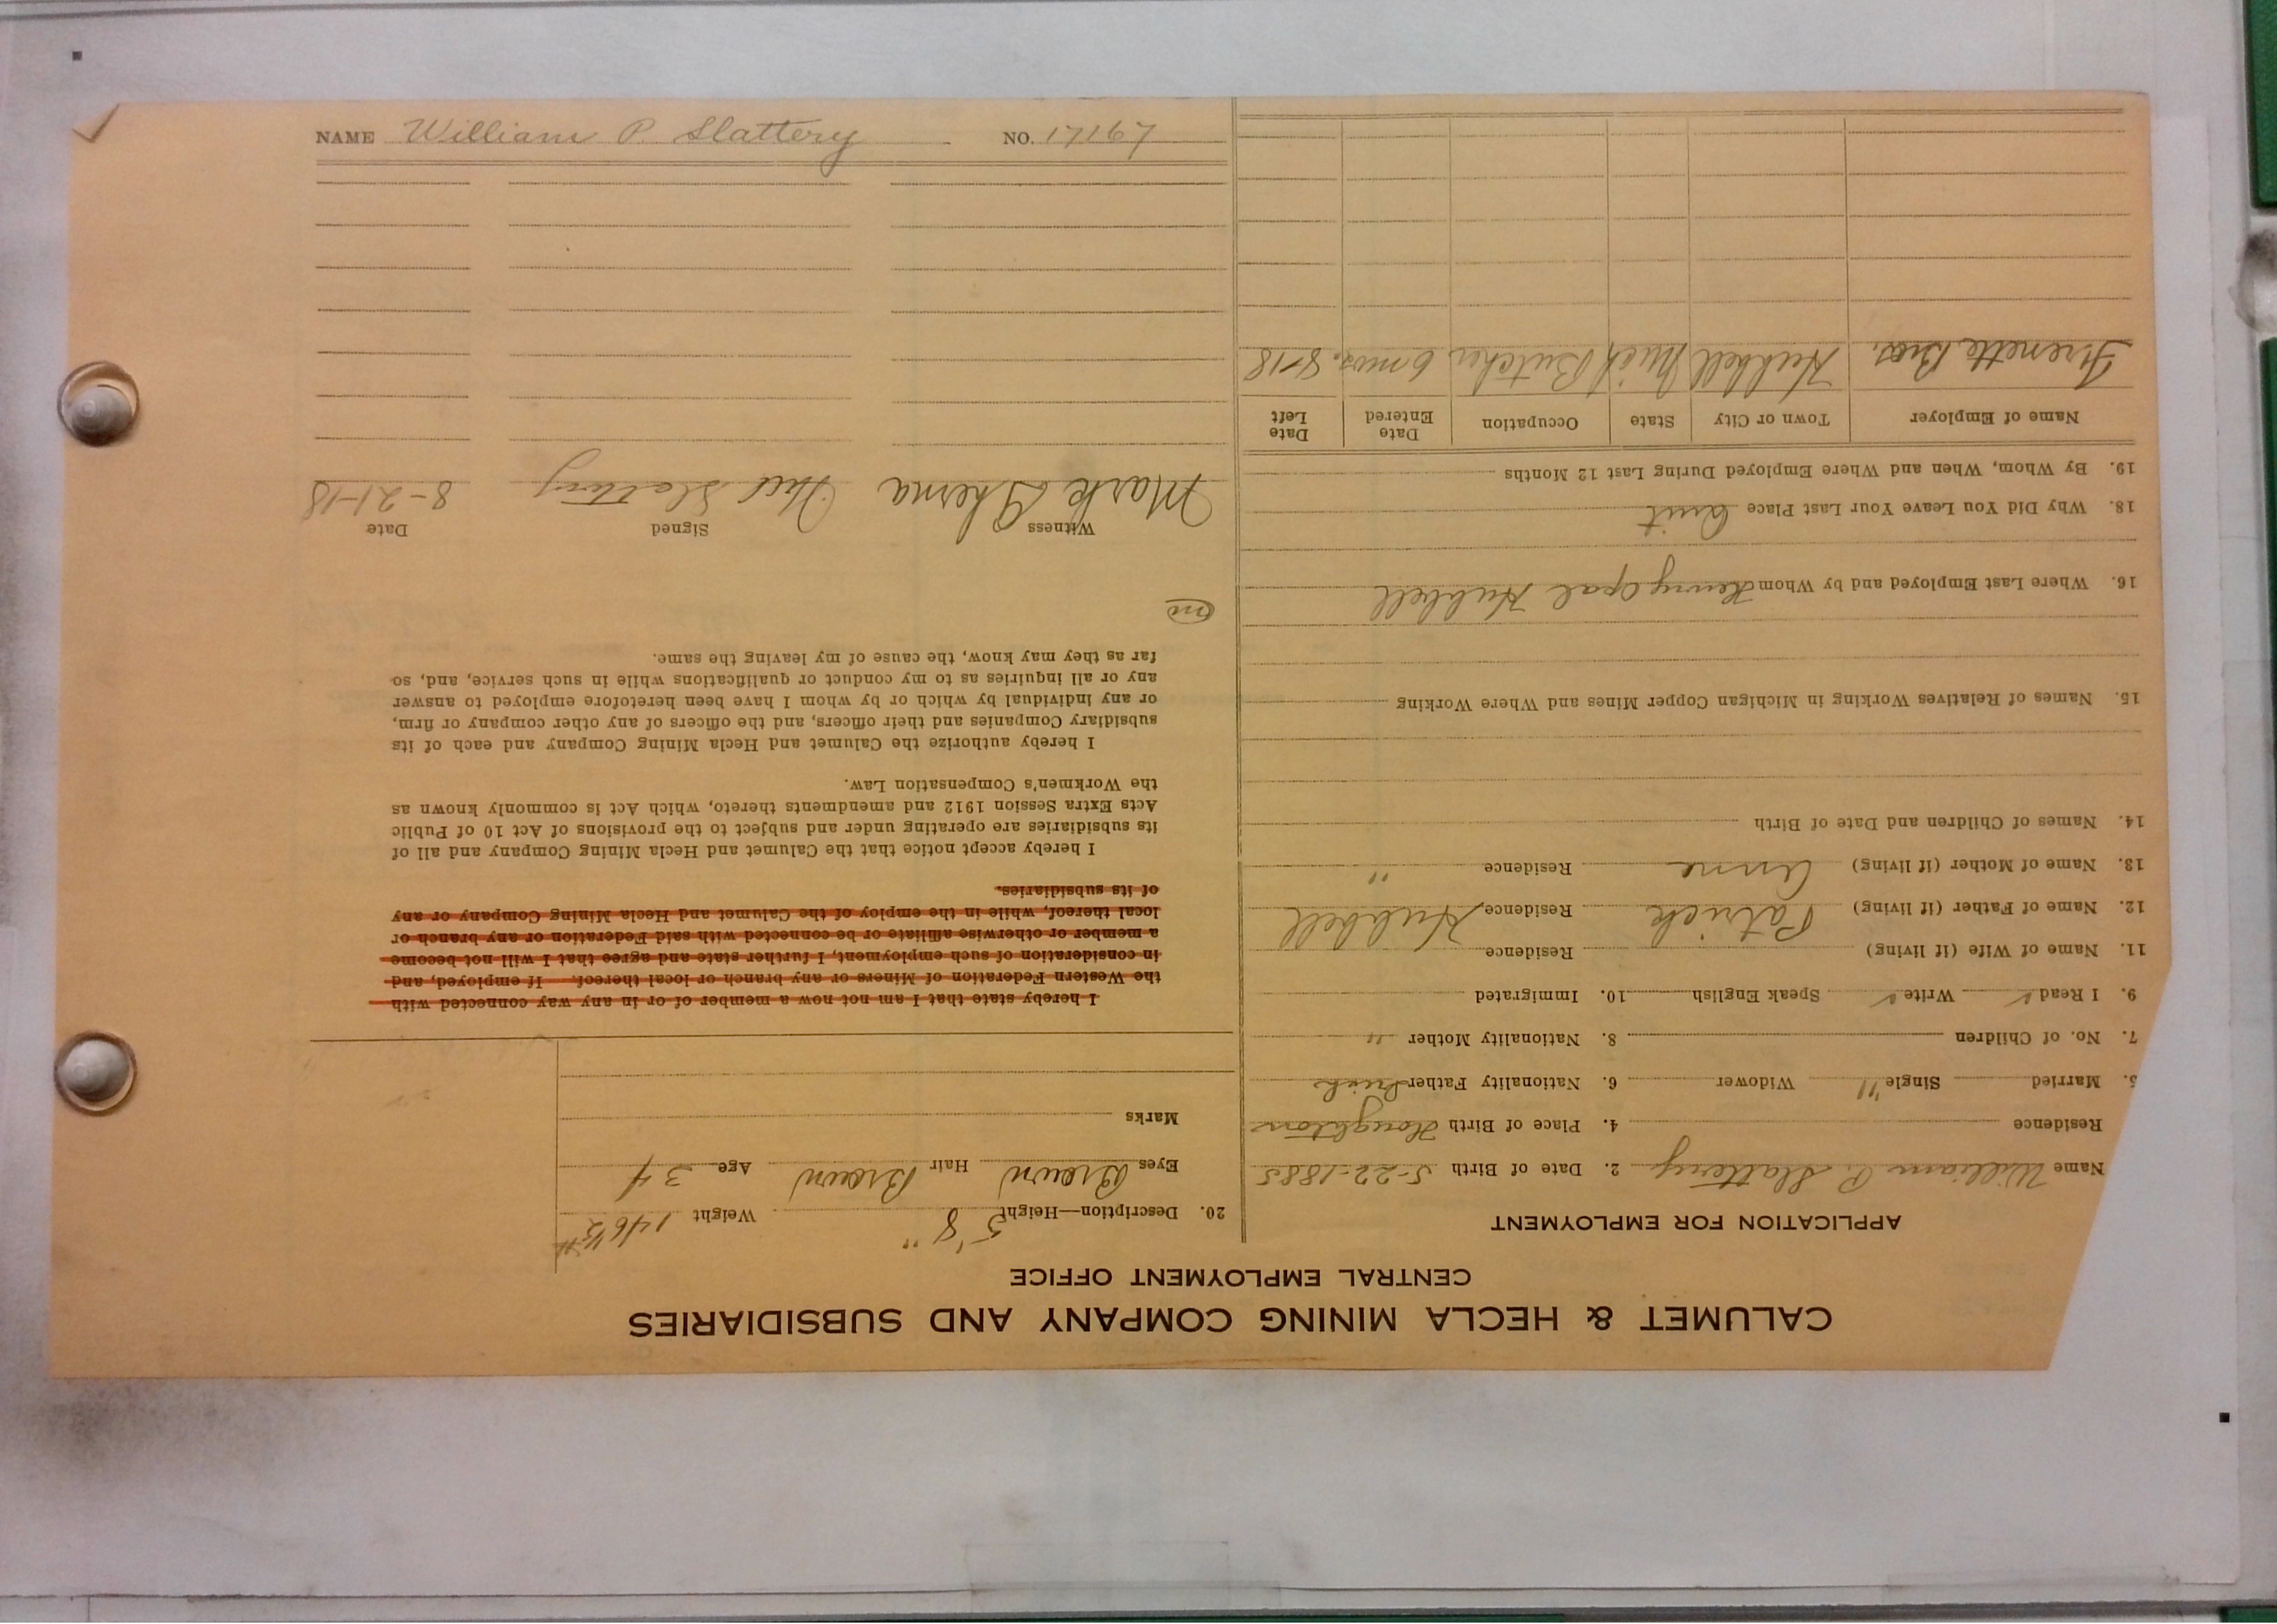 CALUMET & HECLA MINING COMPANY AND SUBSIDIARIES
CENTRAL EMPLOYMENT OFFICE
APPLICATION FOR EMPLOYMENT
Name William P. Slattery 2. Date of Birth 5-22-1885
Residence 4. Place of Birth Houghton
5. Married Single " Widower 6. Nationality Father Irish
7. No. of Children 8. Nationality Mother "
9. I Read ✓ Write ✓ Speak English 10. Immigrated
11. Name of Wife (if living) Residence
12. Name of Father (if living) Patrick Residence Hubbell
13. Name of Mother (if living) Anne Residence "
14. Names of Children and Date of Birth
15. Names of Relatives Working in Michigan Copper Mines and Where Working
16. Where Last Employed and by Whom Henry Opal Hubbell
18. Why Did You Leave Your Last Place Quit
19. By Whom, When and Where Employed During Last 12 Months
Name of Employer Town or City State Occupation Date Entered Date Left
Frenette Bros. Hubbell Mich Butcher 6 mos. 8-18
20. Description—Height 5'8" Weight 146½
Eyes Brown Hair Brown Age 34
Marks
I hereby state that I am not now a member of or in any way connected with
the Western Federation of Miners or any branch or local thereof. If employed, and
in consideration of such employment, I further state and agree that I will not become
a member or otherwise affiliate or be connected with said Federation or any branch or
local thereof, while in the employ of the Calumet and Hecla Mining Company or any
of its subsidiaries.
I hereby accept notice that the Calumet and Hecla Mining Company and all of
its subsidiaries are operating under and subject to the provisions of Act 10 of Public
Acts Extra Session 1912 and amendments thereto, which Act is commonly known as
the Workmen's Compensation Law.
I hereby authorize the Calumet and Hecla Mining Company and each of its
subsidiary Companies and their officers, and the officers of any other company or firm,
or any individual by which or by whom I have been heretofore employed to answer
any or all inquiries as to my conduct or qualifications while in such service, and, so
far as they may know, the cause of my leaving the same.
Witness Signed Date
Mark Slattery 8-21-18
NAME William P. Slattery NO. 17167